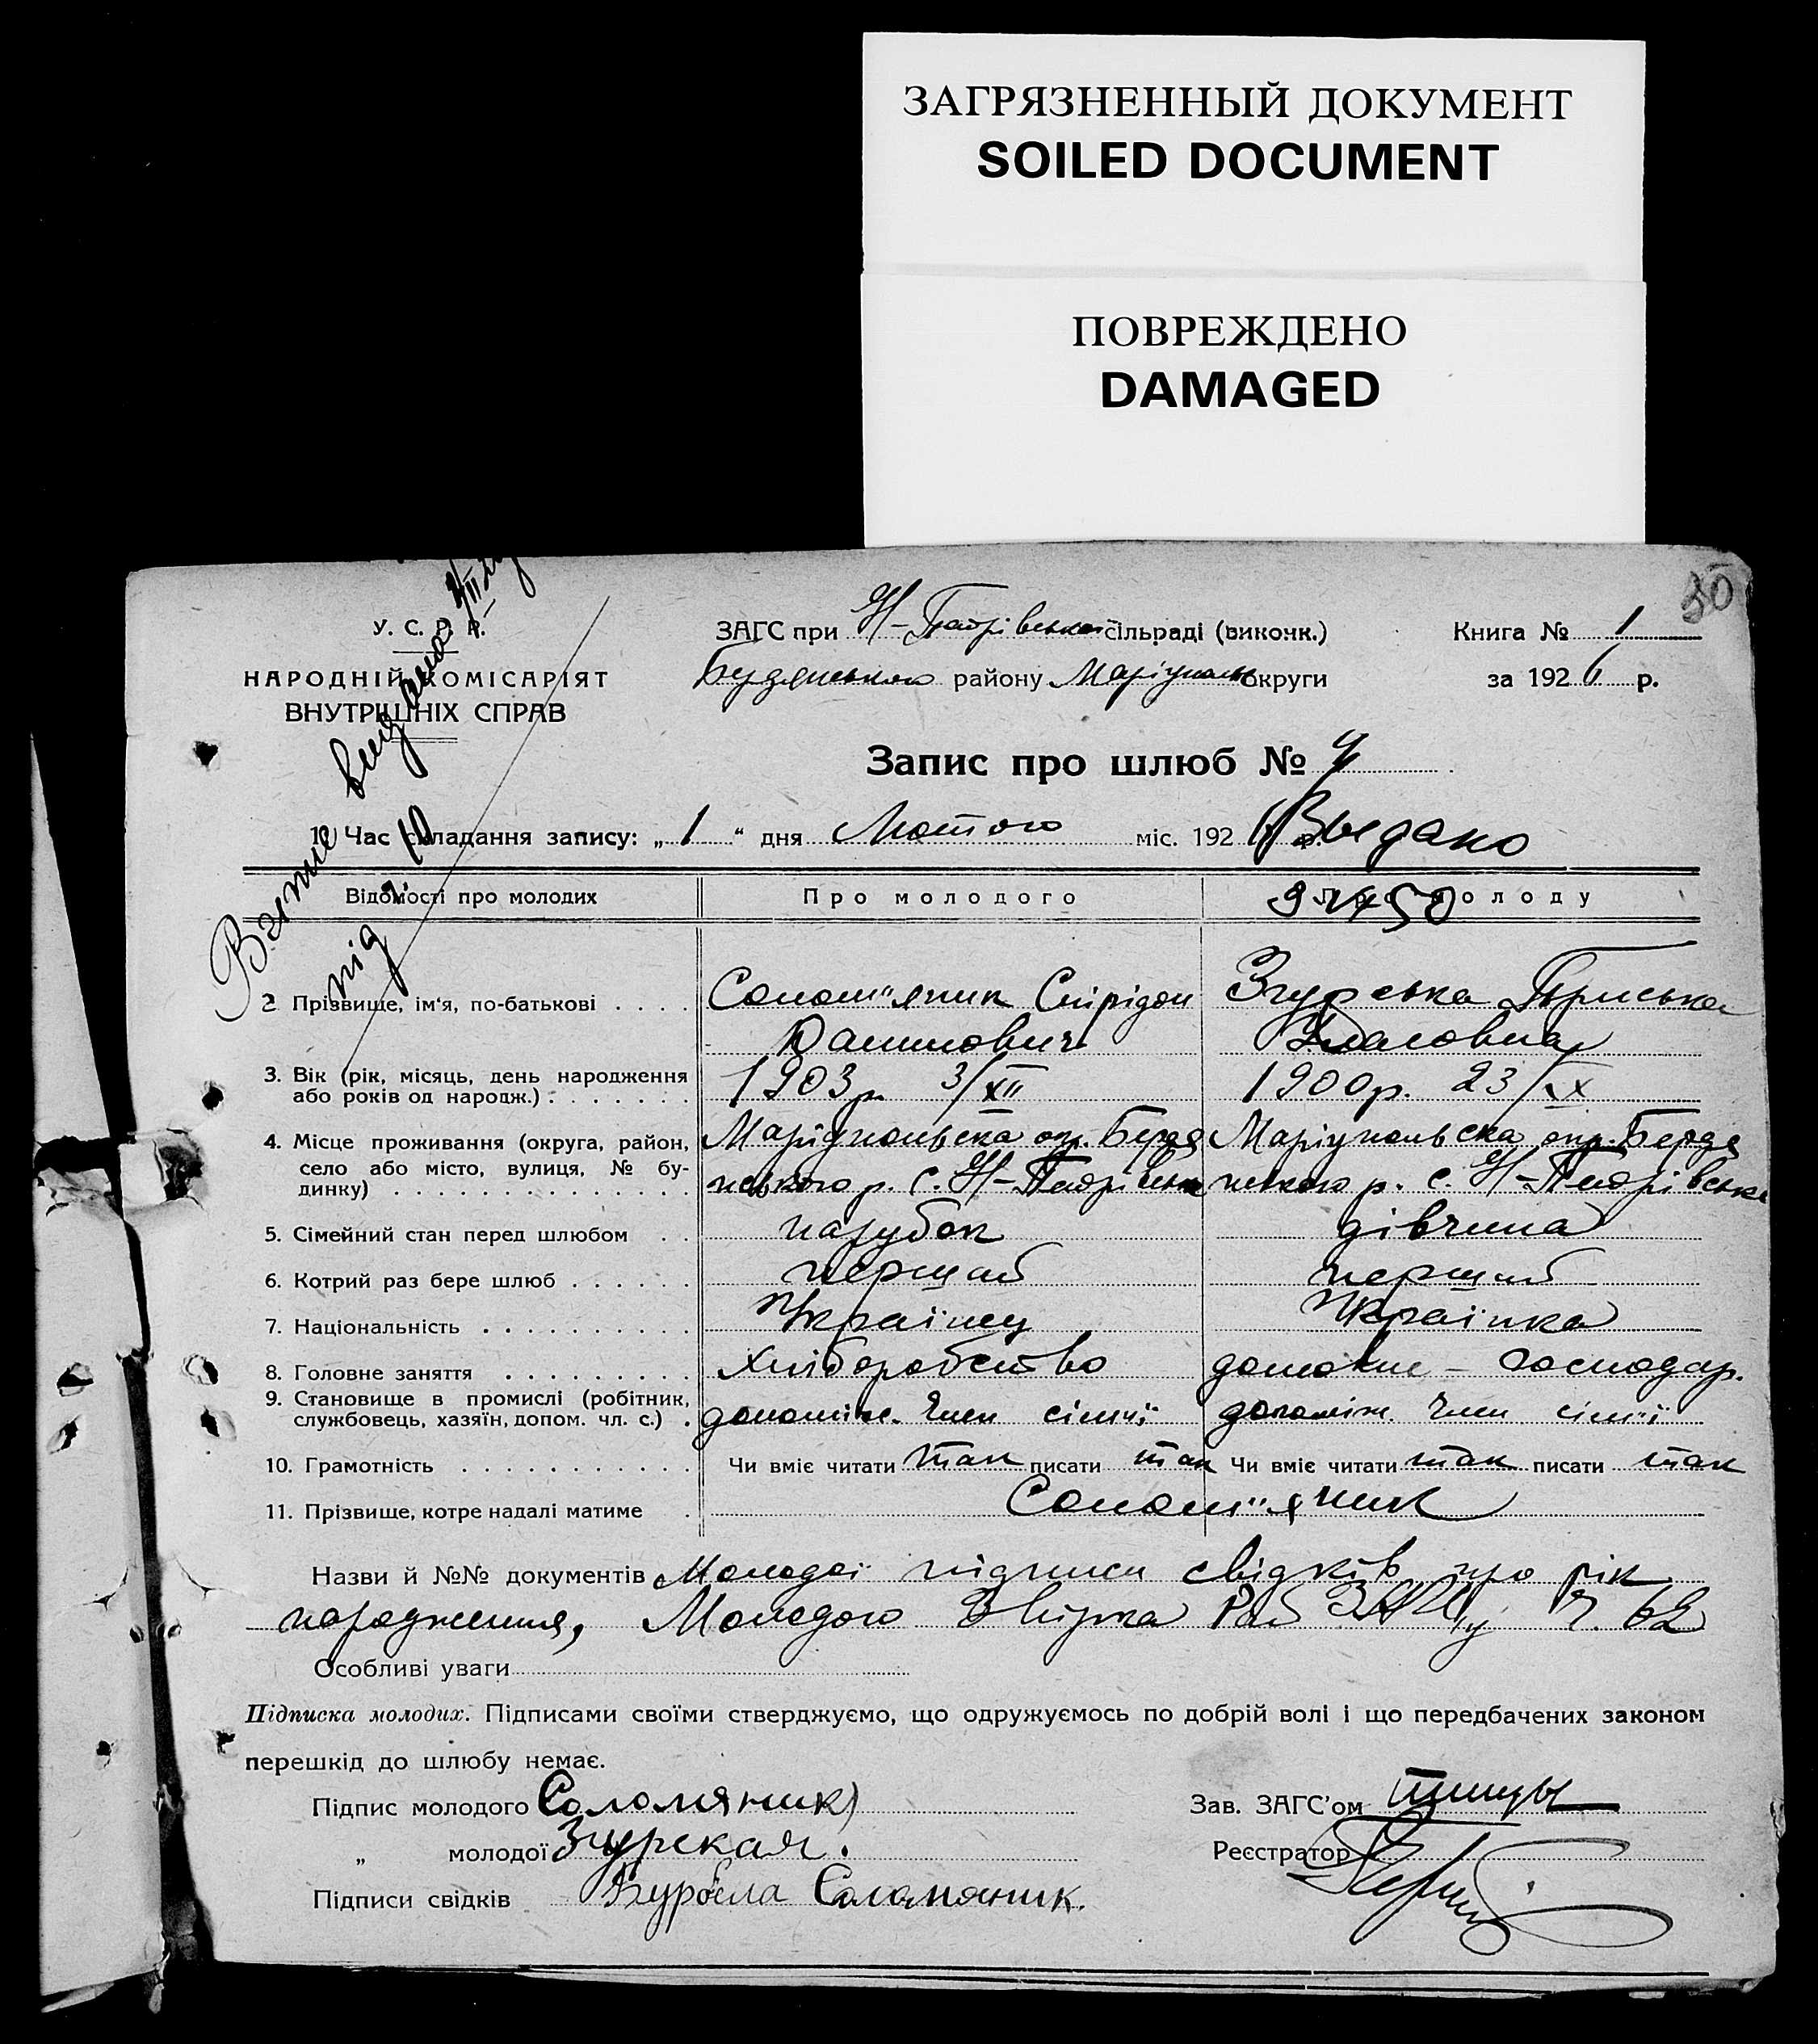 ЗАГРЯЗНЕННЫЙ ДОКУМЕНТ
SOILED DOCUMENT
ПОВРЕЖДЕНО
DAMAGED
У. С. Р. Р.
НАРОДНІЙ КОМІСАРІЯТ
ВНУТРІШНІХ СПРАВ
ЗАГС при Н-Петрівської сільраді (виконк.)
Книга № 1
району Маріупольс округи
за 1926 р.
Запис про шлюб № 4
1. Час складання запису: „1“ дня Лютого міс. 1926 р.
Выдано
Відомості про молодих
Про молодого
Про молоду
2 Прізвище, ім'я, по-батькові . . . .
Солом"яник Спірідон
Данилович
Згурська Пріська
3. Вік (рік, місяць, день народження
або років од народж.) . . . . . . .
1903р. 3/XII
1900р. 23/IX
4. Місце проживання (округа, район,
село або місто, вулиця, № бу-
динку) . . . . . . . . . . . . . .
Маріупольська окр. Бердя
нського р. с. Н-Петрівська
Маріупольська окр. Бердя
нського р. с. Н-Петрівська
5. Сімейний стан перед шлюбом . .
парубок
дівчина
6. Котрий раз бере шлюб . . . . . .
перший
перший
7. Національність . . . . . . . . . .
Українец
Українка
8. Головне заняття . . . . . . . . .
Хліборобство
домашнє - господар.
9. Становище в промислі (робітник,
службовець, хазяїн, допом. чл. с.) .
допоміж. член сімї
допоміж. член сімї
10. Грамотність . . . . . . . . . . .
Чи вміє читати так писати так
Чи вміє читати так писати так
11. Прізвище, котре надалі матиме .
Солом"яник
Назви й №№ документів Молодої підписи свідків про рік
народження, Молодого Ч. 62
Особливі уваги
Підписка молодих. Підписами своїми стверджуємо, що одружуємось по добрій волі і що передбачених законом
перешкід до шлюбу немає.
Підпис молодого Соломяник
Зав. ЗАГС'ом
„ молодої Згурская.
Реєстратор
Підписи свідків Бурбела Саламяник.